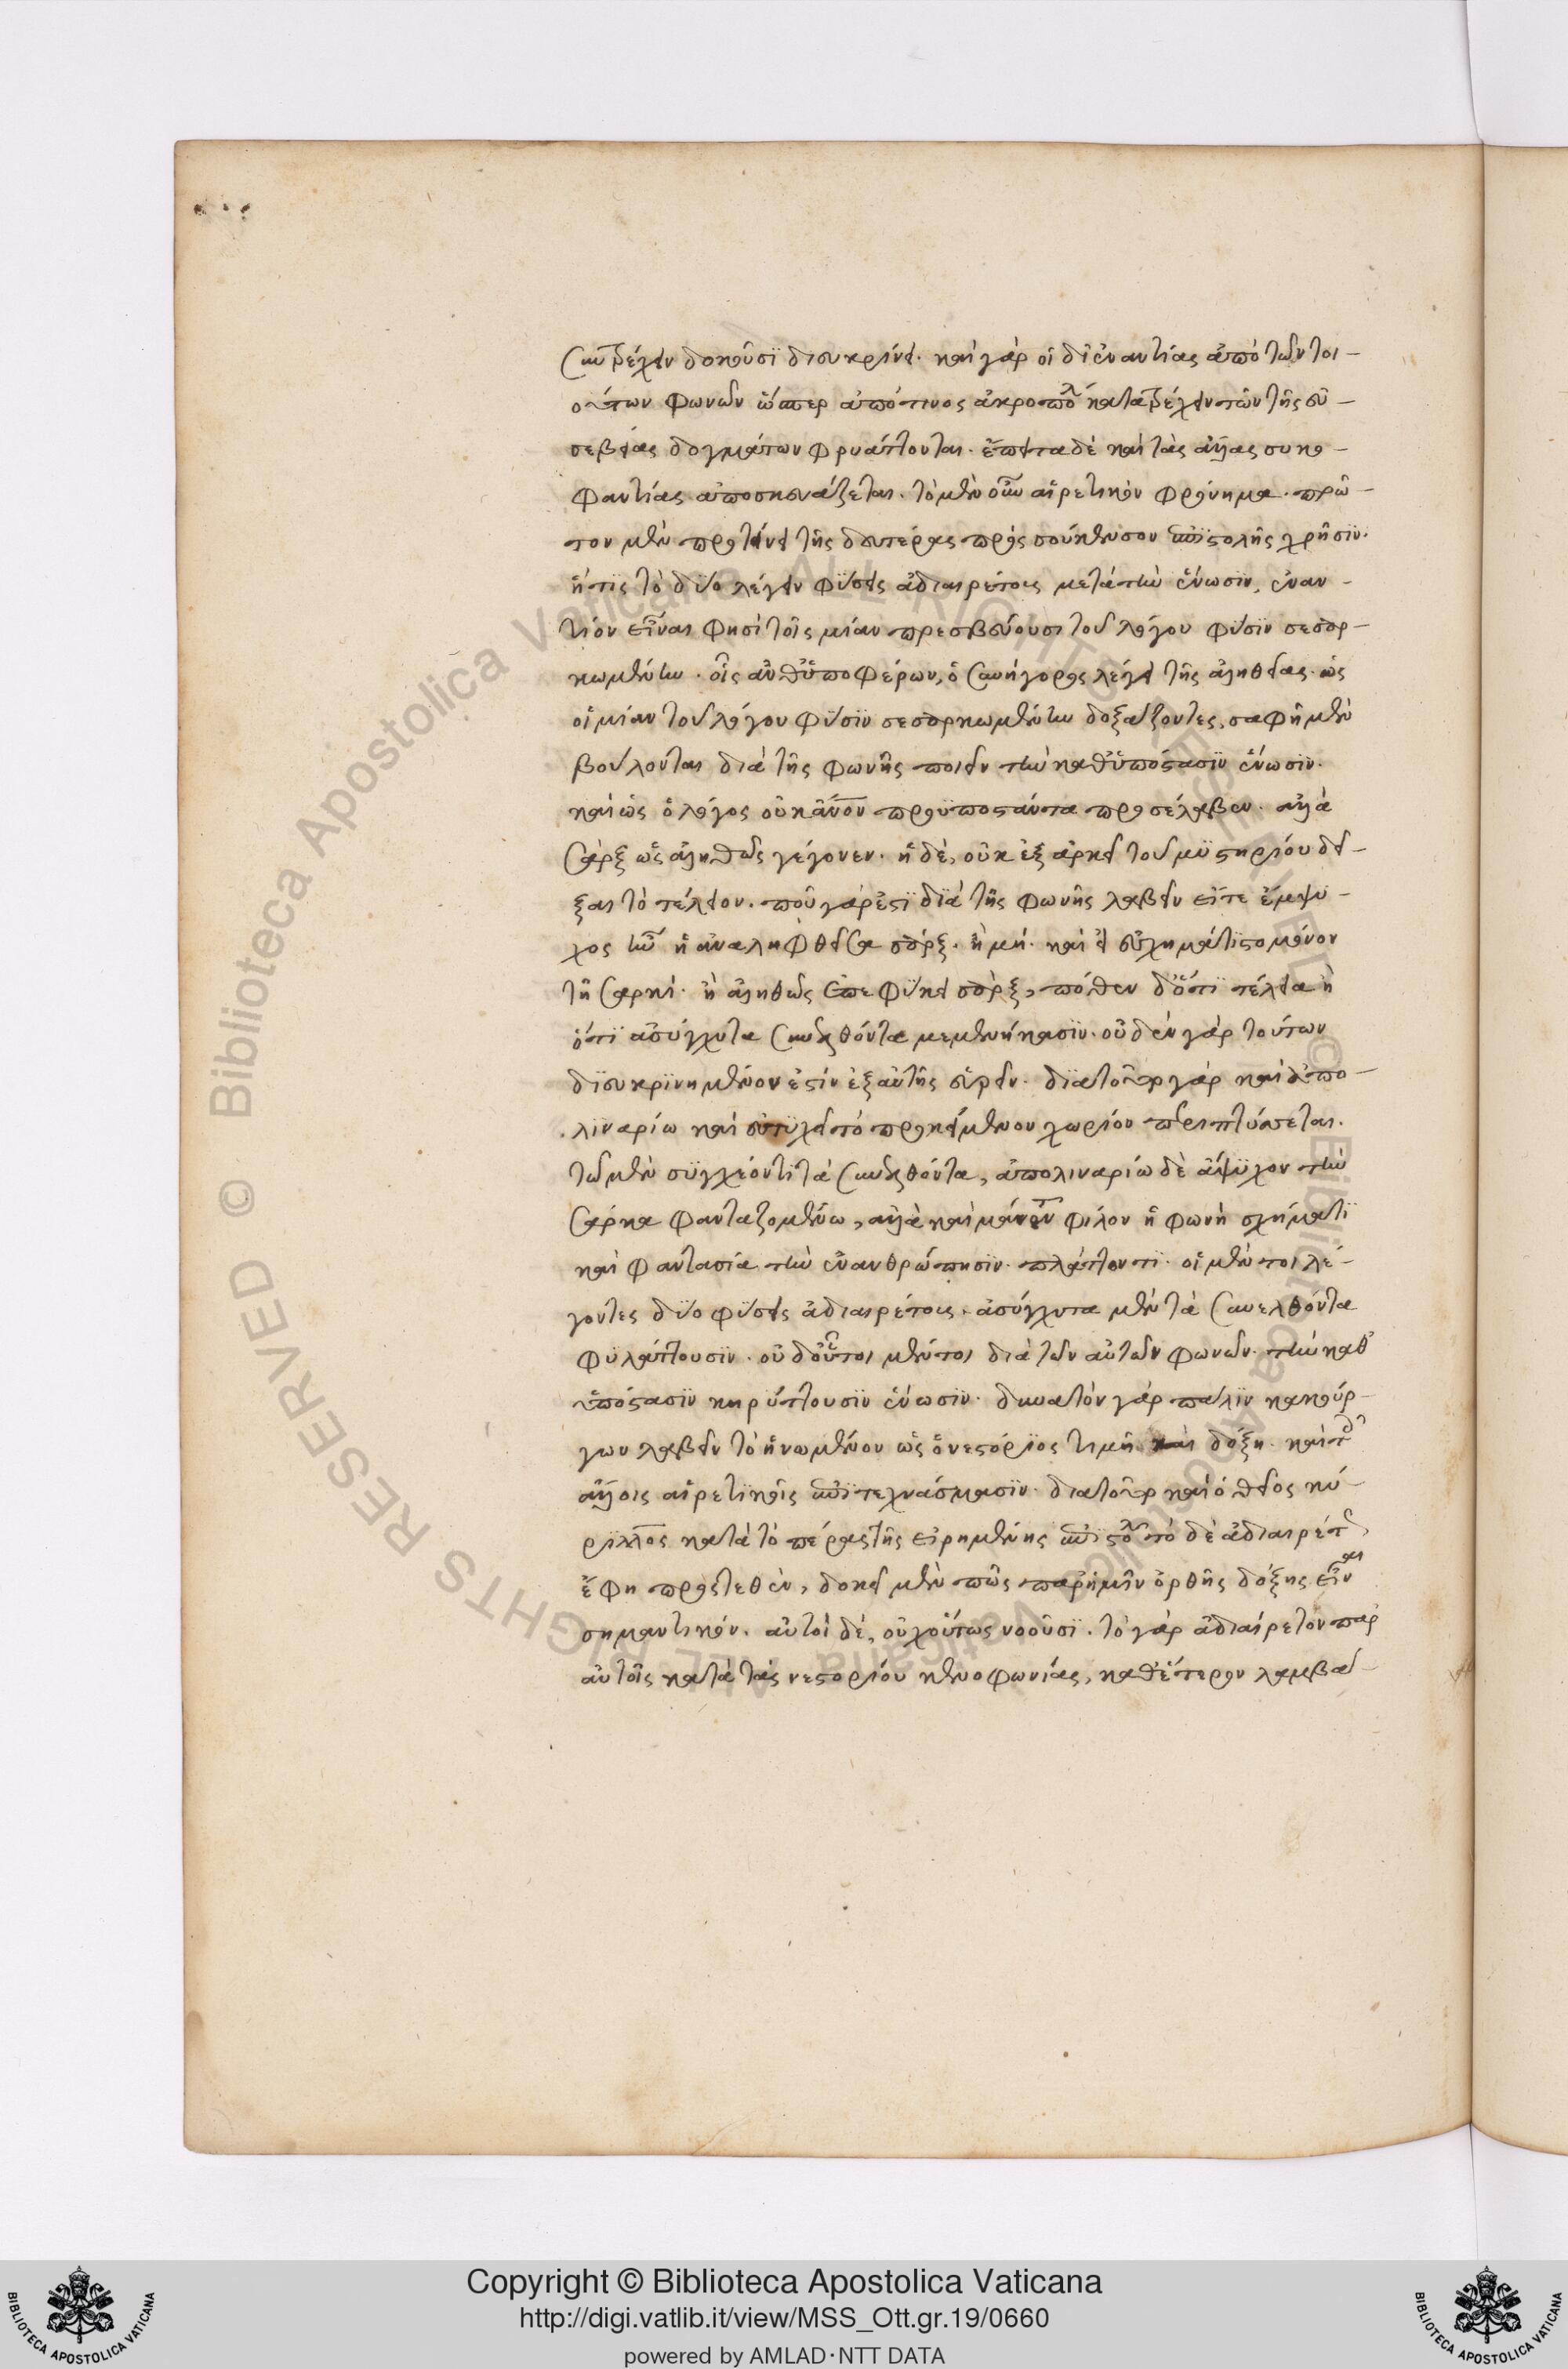 συντρέχειν δοκοῦσι διευκρινεῖ. καὶ γὰρ οἱ δι' ἐναντίας ἀπὸ τῶν τοι-
ούτων φωνῶν ὥσπερ ἀπό τινος ἀκροπόλ κατατρέχειν τῶν τῆς εὐ-
σεβείας δογμάτων φρυάττονται. ἔπειτα δὲ καὶ τὰς ἄλλας συκο-
φαντίας ἀποσκευάζεται. τὸ μὲν οὖν αἱρετικὸν φρόνημα. πρῶ-
τον μὲν προτείνει τῆς δευτέρας πρὸς σούκενσον ἐπιστολῆς χρῆσιν.
ἥτις τὸ δύο λέγειν φύσεις ἀδιαιρέτους μετὰ τὴν ἕνωσιν, ἐναν-
τίον εἶναι φησὶ τοῖς μίαν πρεσβεύουσι τοῦ λόγου φύσιν σεσαρ-
κωμένην. οἷς ἀνθυποφέρων, ὁ συνήγορος λέγει τῆς ἀληθείας. ὡς
οἱ μίαν τοῦ λόγου φύσιν σεσαρκωμένην δοξάζοντες, σαφῆ μὲν
βούλονται διὰ τῆς φωνῆς ποιεῖν τὴν καθ' ὑπόστασιν ἕνωσιν.
καὶ ὡς ὁ λόγος οὐκ ἄνον προϋποστάντα προσέλαβεν. ἀλλὰ
σάρξ ὡς ἀληθῶς γέγονεν. ἡ δὲ, οὐκ ἐξαρκεῖ τοῦ μυστηρίου δεῖ-
ξαι τὸ τέλειον. ποῦ γάρ ἐστι διὰ τῆς φωνῆς λαβεῖν εἴτε ἔμψυ-
χος ἦν ἡ ἀναληφθεῖσα σάρξ. ἢ μή. καὶ εἰ συσχημάτιστο μόνον
τῇ σαρκί. ἢ ἀληθῶς ἐπεφύκει σάρξ, πόθεν δ' ὅτι τέλεια ἢ
ὅτι ἀσύγχυτα συνελθόντα μεμενήκασιν. οὐδὲν γὰρ τούτων
διευκρινημένον ἐστὶν ἐξ αὐτῆς εὑρεῖν. διατοῦτο γὰρ καὶ ἀπο-
λιναρίω καὶ εὐτυχεῖ τὸ προκείμενον χωρίον περιπτύσσεται.
τῷ μὲν συγχέοντι τὰ συνελθόντα, ἀπολιναρίω δὲ ἄψυχον τὴν
σάρκα φανταζομένω, ἀλλὰ καὶ μάνεντ φίλον ἡ φωνὴ σχήματι
καὶ φαντασία τὴν ἐνανθρώπησιν πλάττοντι. οἱ μέν τοι λέ-
γοντες δύο φύσεις ἀδιαιρέτους. ἀσύγχυτα μὲν τὰ συνελθόντα
φυλάττουσιν. οὐδ' οὗτοι μέντοι διὰ τῶν αὐτῶν φωνῶν. τὴν καθ'
ὑπόστασιν κηρύττουσιν ἕνωσιν. δυνατὸν γὰρ πάλιν κακούρ-
γων λαβεῖν τὸ ἡνωμένον ὡς ὁ νεστόριος τιμῇ καὶ δόξη. καὶ τοῖς
ἄλλοις αἱρετικοῖς ἐπιτεχνάσμασιν. διατοῦτο καὶ ὁ θεῖος κύ-
ριλλος κατὰ τὸ πέρας τῆς εἰρημένης ἐπιστολ τὸ δὲ ἀδιαιρέτ,
ἔφη προστεθὲν, δοκεῖ μὲν πῶς παρ' ἡμῖν ὀρθῆς δόξης εἶναι
σημαντικόν. αὐτοὶ δὲ, οὐχ οὕτως νοοῦσι. τὸ γὰρ ἀδιαίρετον παρ'
αὐτοῖς κατὰ τὰς νεστορίου κενοφωνίας, καθ' ἕτερον λαμβά-
Copyright © Biblioteca Apostolica Vaticana
http://digi.vatlib.it/view/MSS_Ott.gr.19/0660
powered by AMLAD·NTT DATA